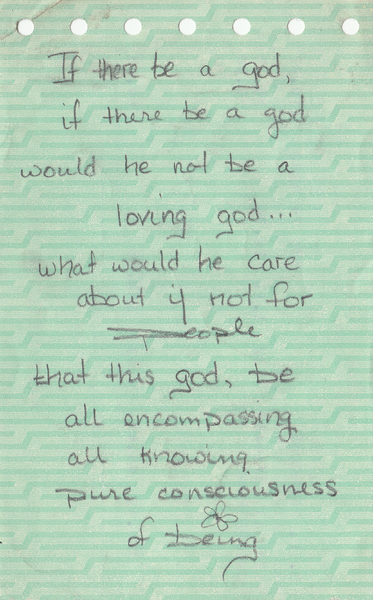 If there be a god,
if there be a god
would he not be a
loving god...
what would he care
about if not for
people
that this god, be
all encompassing
all knowing
pure consciousness
of being